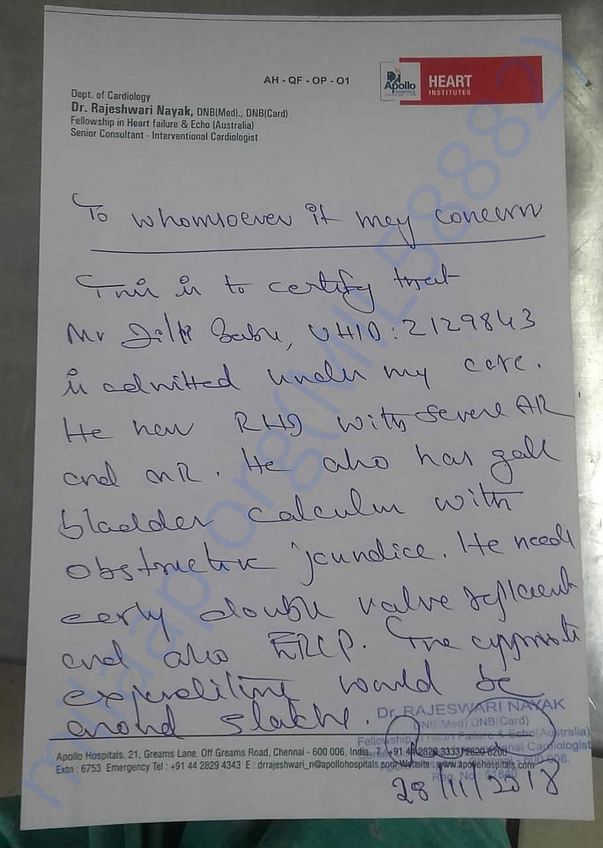 AH - QF - OP - O1
Apollo
HOSPITALS
HEART
INSTITUTES
Dept. of Cardiology
Dr. Rajeshwari Nayak, DNB(Med)., DNB(Card)
Fellowship in Heart failure & Echo (Australia)
Senior Consultant - Interventional Cardiologist
To whomsoever it may concern
This is to certify that
Mr Babu, UHID: 2129843
is admitted under my care.
He has RHD with severe AR
and MR. He also has gall
bladder calculus with
obstructive jaundice. He needs
early double valve replacement
and also ERCP. The approximate
expenditure would be
around
Dr. RAJESWARI NAYAK
DNB(Med), DNB(Card)
Fellowship in Heart Failure & Echo(Australia)
Apollo Hospitals, 21, Greams Lane, Off Greams Road, Chennai - 600 006, India.
Extn : 6753 Emergency Tel : +91 44 2829 4343 E : drrajeshwari_n@apollohospitals.com Website : www.apollohospitals.com
28/11/2018
milaap.org(MIL58882)